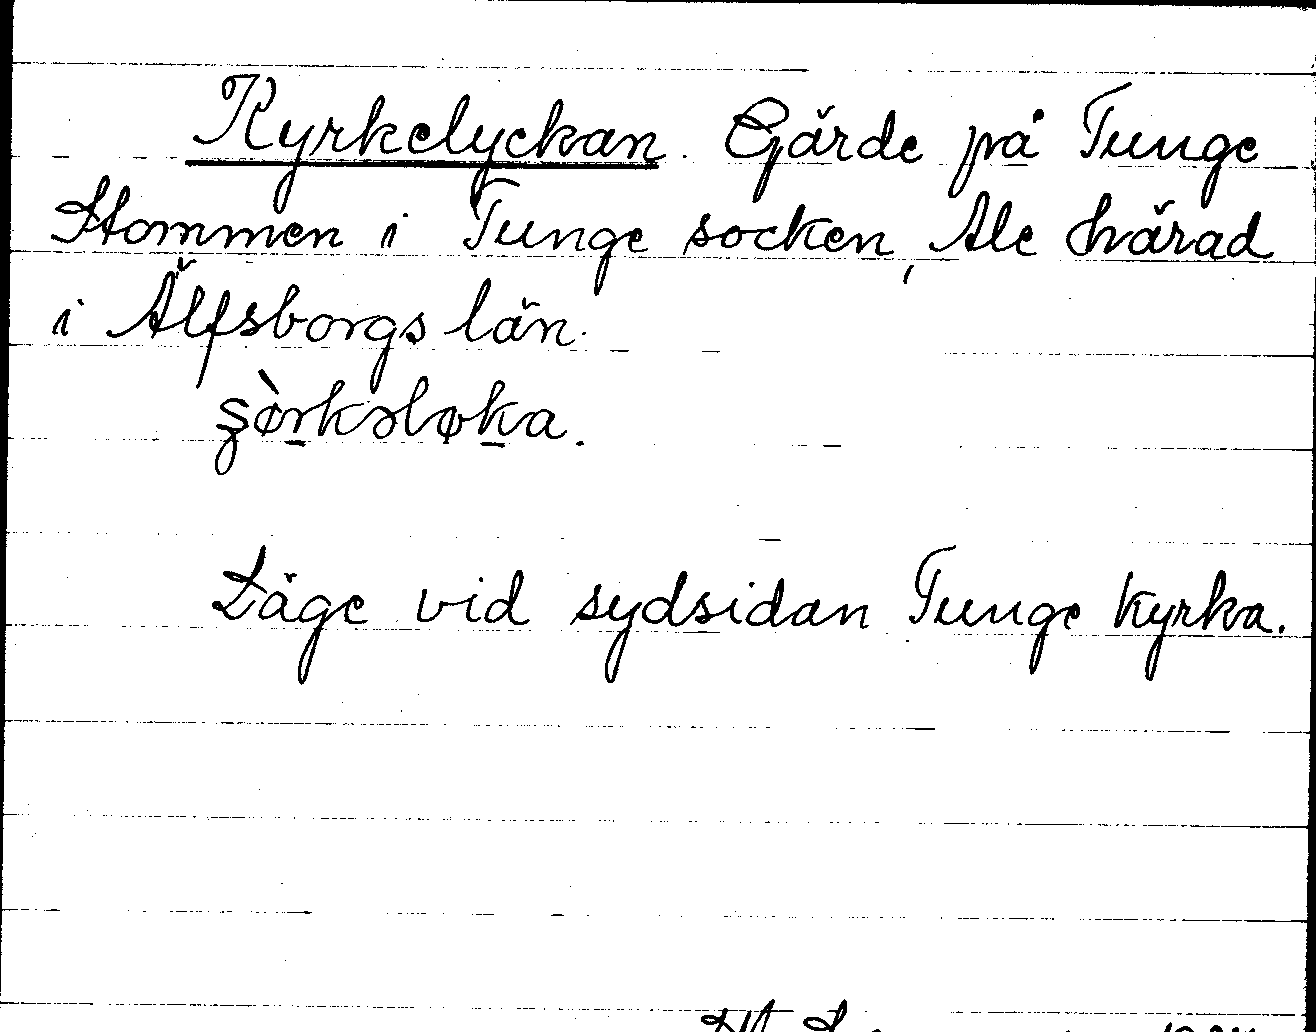 Kyrkelyckan. Gärde på Tunge
Stommen i Tunge socken, Ale härad
i Älfsborgs län.
Läge vid sydsidan Tunge kyrka.